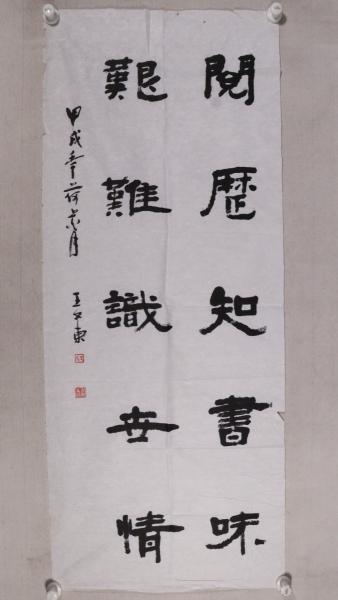 閱歷知書味
艱難識世情
甲戌年荷月
王 東